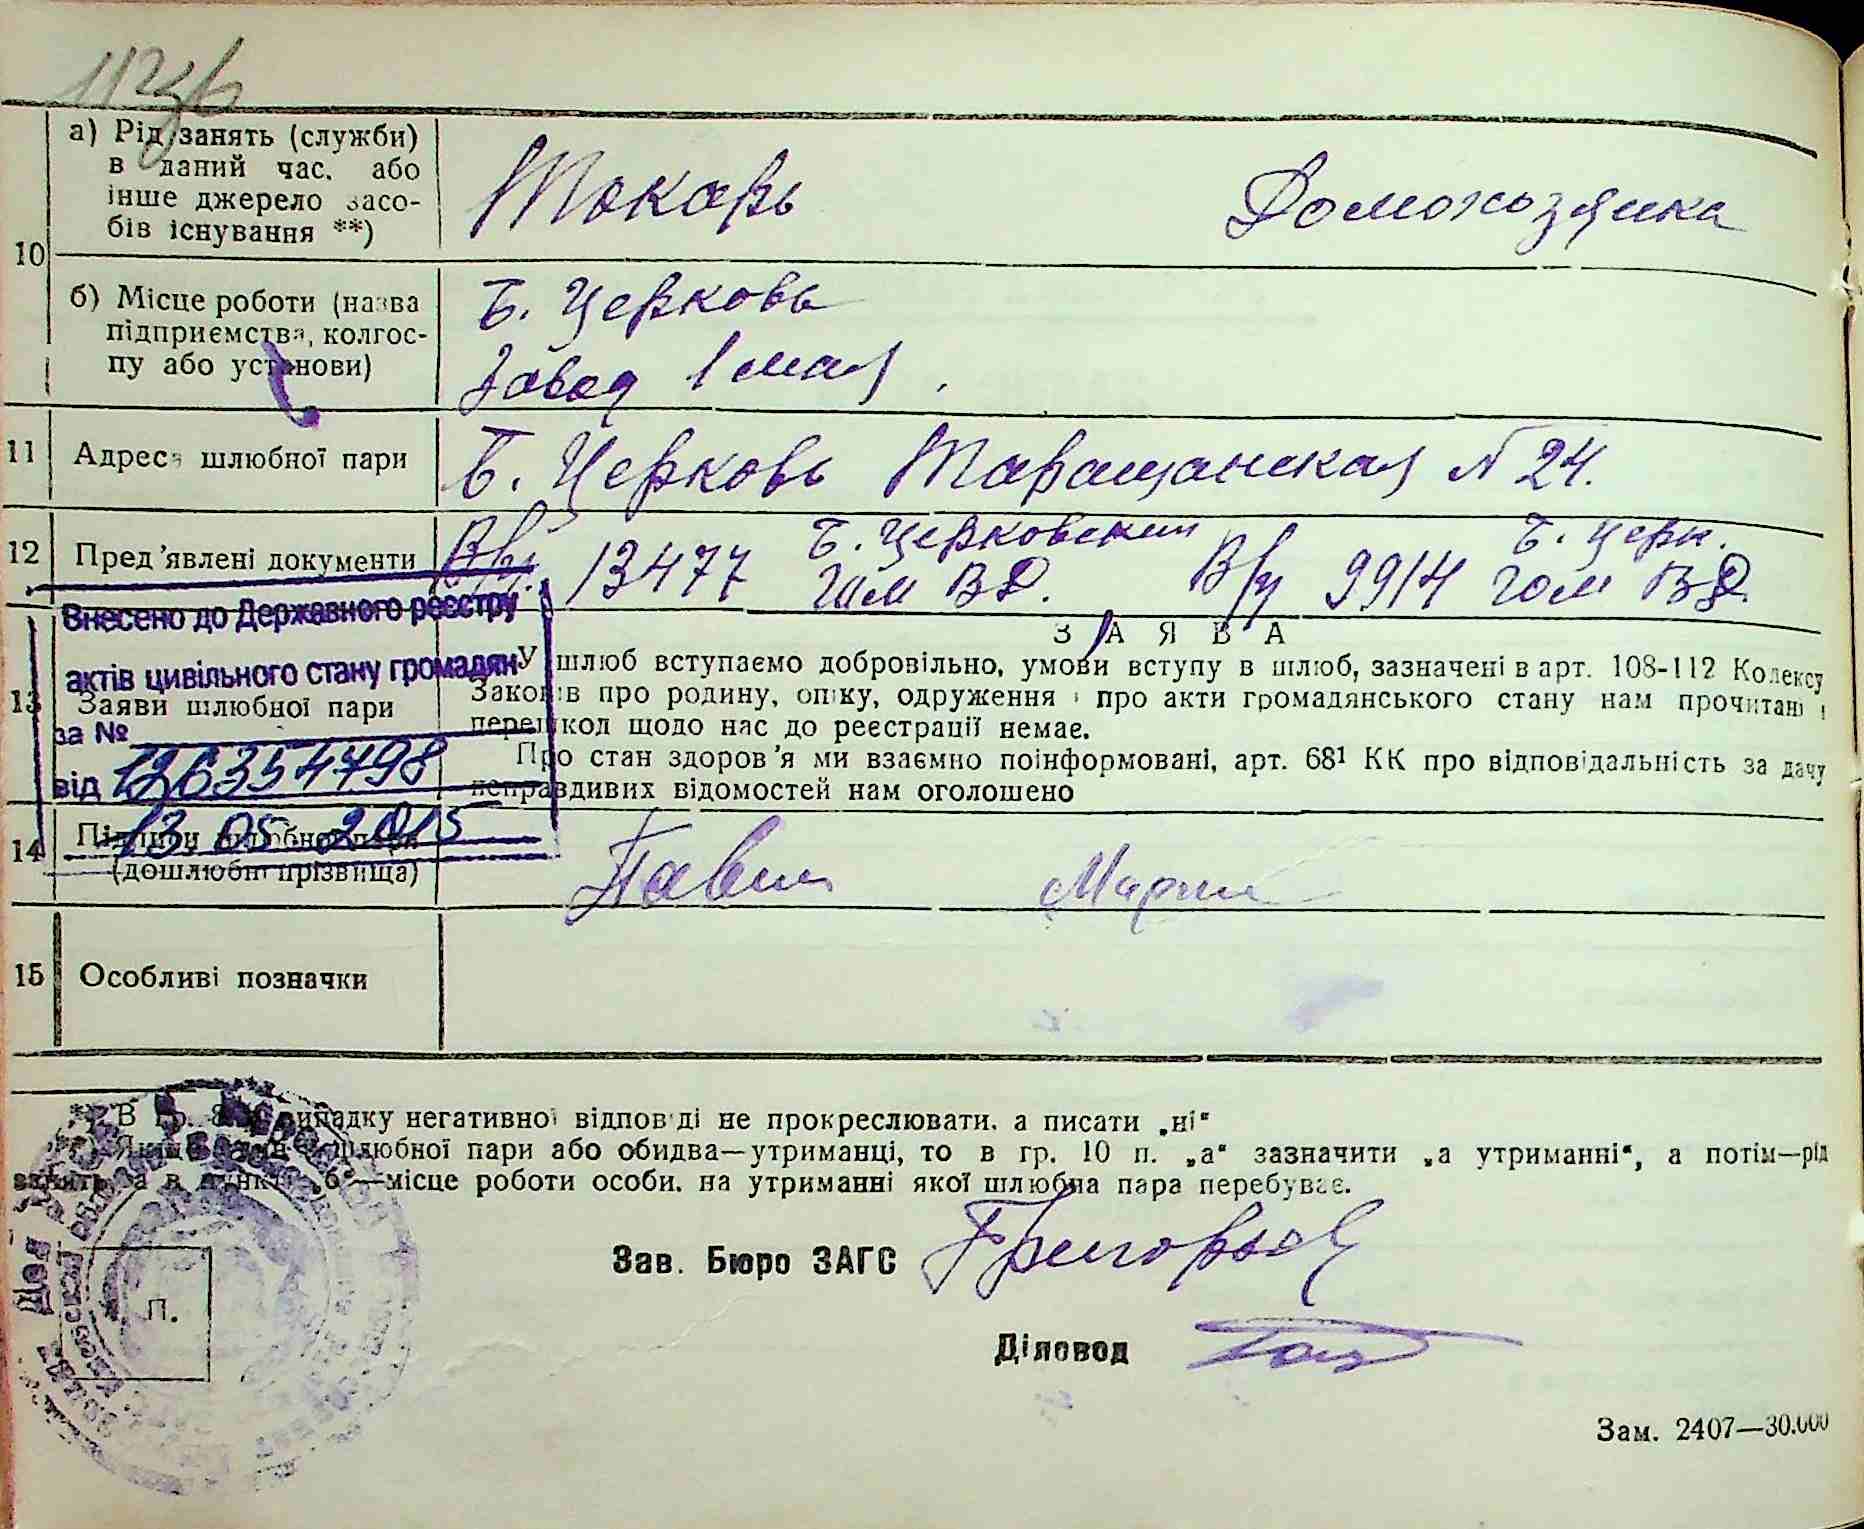 10
а) Рід занять (служби)
в даний час, або
інше джерело засо-
бів існування **)
Токарь
Домохозяика
б) Місце роботи (назва
підприємства, колгос-
пу або установи)
Б. Церковь
Завод 1 мая
11
Адреса шлюбної пари
Б. Церковь Таращанская № 24.
12
Пред'явлені документи
13477
Б. Церковским
ВД.
9914
Б. Церк.
ВД.
Внесено до Державного реєстру
актів цивільного стану громадян
за №
від 126354798
13 05 2015
З А Я В А
13
Заяви шлюбної пари
У шлюб вступаємо добровільно, умови вступу в шлюб, зазначені в арт. 108-112 Кодексу
Законів про родину, опіку, одруження і про акти громадянського стану нам прочитані і
перешкод щодо нас до реєстрації немає.
Про стан здоров'я ми взаємно поінформовані, арт. 68¹ КК про відповідальність за дачу
неправдивих відомостей нам оголошено
14
Підписи шлюбної пари
(дошлюбні прізвища)
15
Особливі позначки
*) В гр. 8 випадку негативної відповіді не прокреслювати, а писати „ні“
шлюбної пари або обидва—утриманці, то в гр. 10 п. „а“ зазначити „а утриманні“, а потім—рід
занять, а в пункті „б“—місце роботи особи, на утриманні якої шлюбна пара перебуває.
Зав. Бюро ЗАГС
Діловод
П.
Зам. 2407—30.000